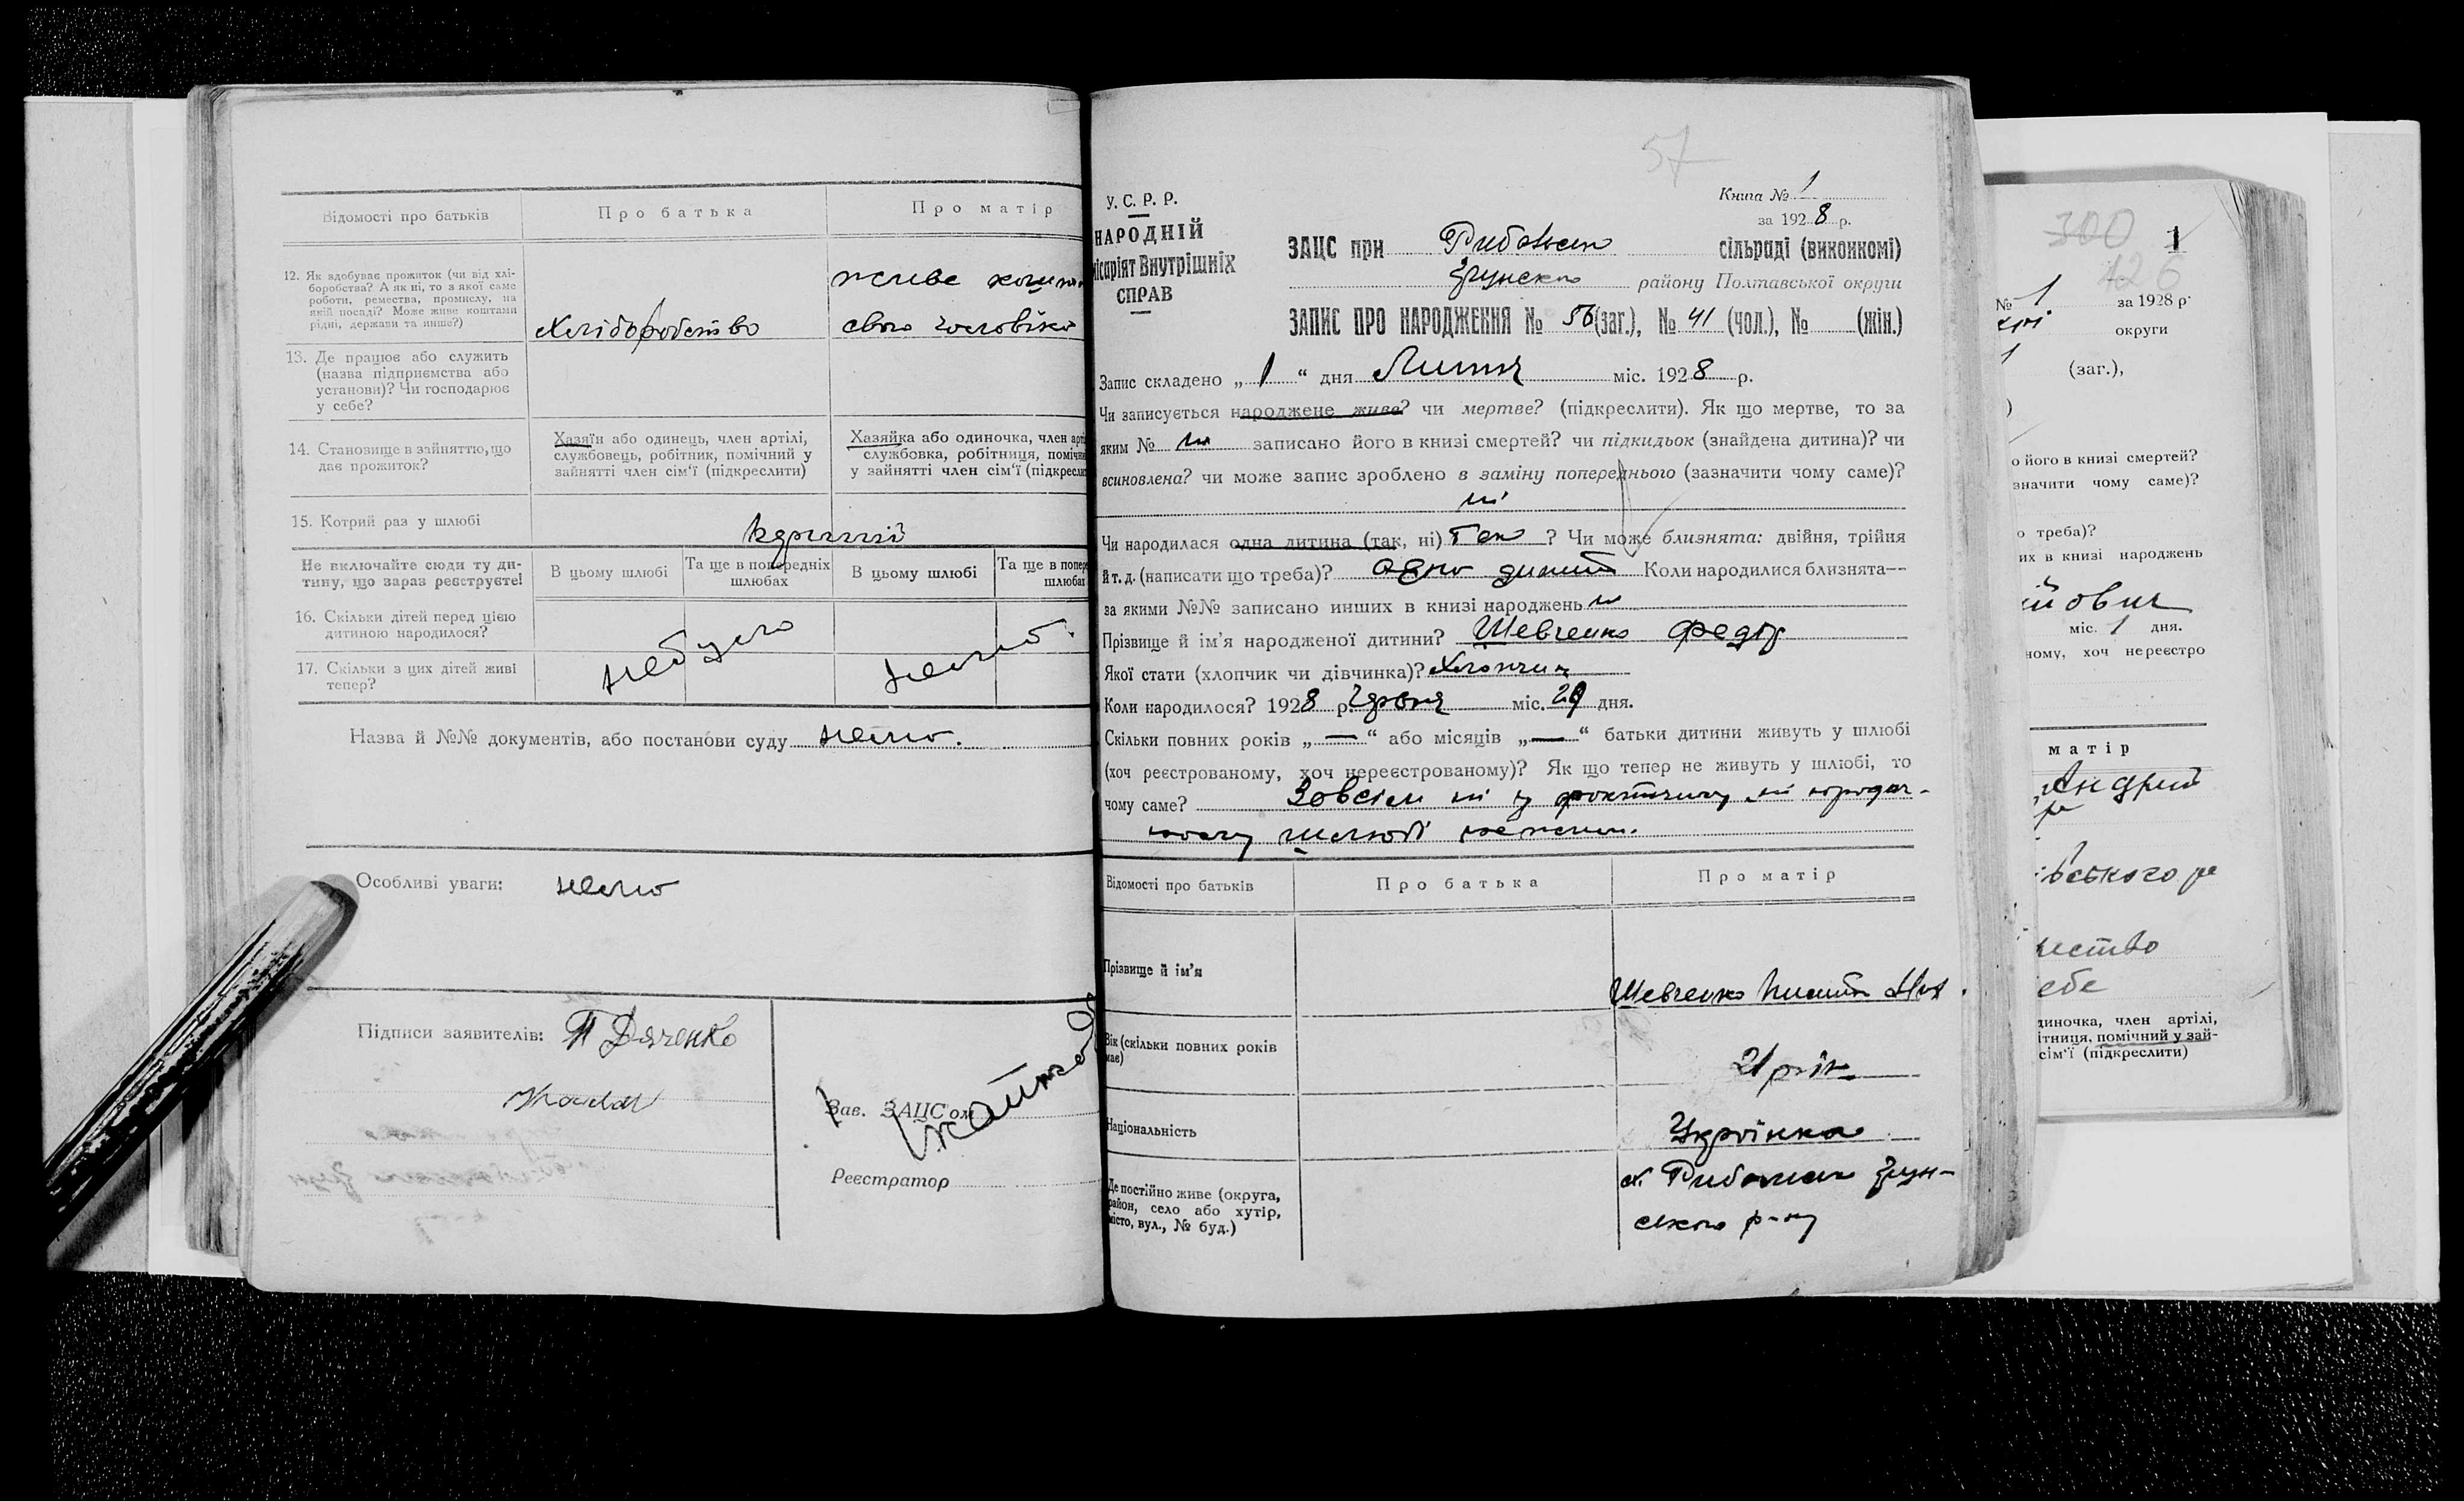 Відомості про батьків
Про батька
Про матір
12. Як здобуває прожиток (чи від хлі-
боробства? А як ні, то з якої саме
роботи, ремества, промислу, на
якій посаді? Може живе коштами
рідні, держави та инше?)
Хліборобство
живе
свого чоловіка
13. Де працює або служить
(назва підприємства або
установи)? Чи господарює
у себе?
14. Становище в зайняттю, що
дає прожиток?
Хазяїн або одинець, член артілі,
службовець, робітник, помічний у
зайнятті член сім'ї (підкреслити)
Хазяйка або одиночка, член арті
службовка, робітниця, поміч
у зайнятті член сім'ї (підкресли
15. Котрий раз у шлюбі
Не включайте сюди ту ди-
тину, що зараз реєструєте!
В цьому шлюбі
Та ще в попередніх
шлюбах
В цьому шлюбі
Та ще в попере
шлюбах
16. Скільки дітей перед цією
дитиною народилося?
17. Скільки з цих дітей живі
тепер?
небуло
нема
Назва й №№ документів, або постанови суду нема.
Особливі уваги: нема
Підписи заявителів: П Дяченко
Зав. ЗАЦС'ом
Реєстратор
57
У. С. Р. Р.
НАРОДНІЙ
місаріят Внутрішніх
СПРАВ
Книга № 1
за 1928 р.
ЗАЦС при сільраді (виконкомі)
району Полтавської округи
ЗАПИС ПРО НАРОДЖЕННЯ № 56 (заг.), № 41 (чол.), № (жін.)
Запис складено „ 1 “ дня Липня міс. 1928 р.
Чи записується народжене живе? чи мертве? (підкреслити). Як що мертве, то за
яким № ні записано його в книзі смертей? чи підкидьок (знайдена дитина)? чи
всиновлена? чи може запис зроблено в заміну попереднього (зазначити чому саме)?
ні
Чи народилася одна дитина (так, ні) Так ? Чи може близнята: двійня, трійня
й т. д. (написати що треба)? одно Коли народилися близнята—
за якими №№ записано инших в книзі народжень ні
Прізвище й ім'я народженої дитини? Шевченко Федір
Якої стати (хлопчик чи дівчинка)? Хлопчик
Коли народилося? 1928 р. Червня міс. 29 дня.
Скільки повних років „ — “ або місяців „ — “ батьки дитини живуть у шлюбі
(хоч реєстрованому, хоч нереєстрованому)? Як що тепер не живуть у шлюбі, то
чому саме? Зовсім ні у фактичному ні
шлюбі
Відомості про батьків
Про батька
Про матір
Прізвище й ім'я
Шевченко
Вік (скільки повних років
має)
21 рік
Національність
Українка
Де постійно живе (округа,
район, село або хутір,
місто, вул., № буд.)
ського р-ну
300 1
126
№ 1 за 1928 р.
округи
(заг.),
о його в книзі смертей?
значити чому саме)?
о треба)?
их в книзі народжень
йович
міс. 1 дня.
ному, хоч нереєстро
матір
Андрій
ського ра
ество
ебе
диночка, член артілі,
ітниця, помічний у зай-
сім'ї (підкреслити)